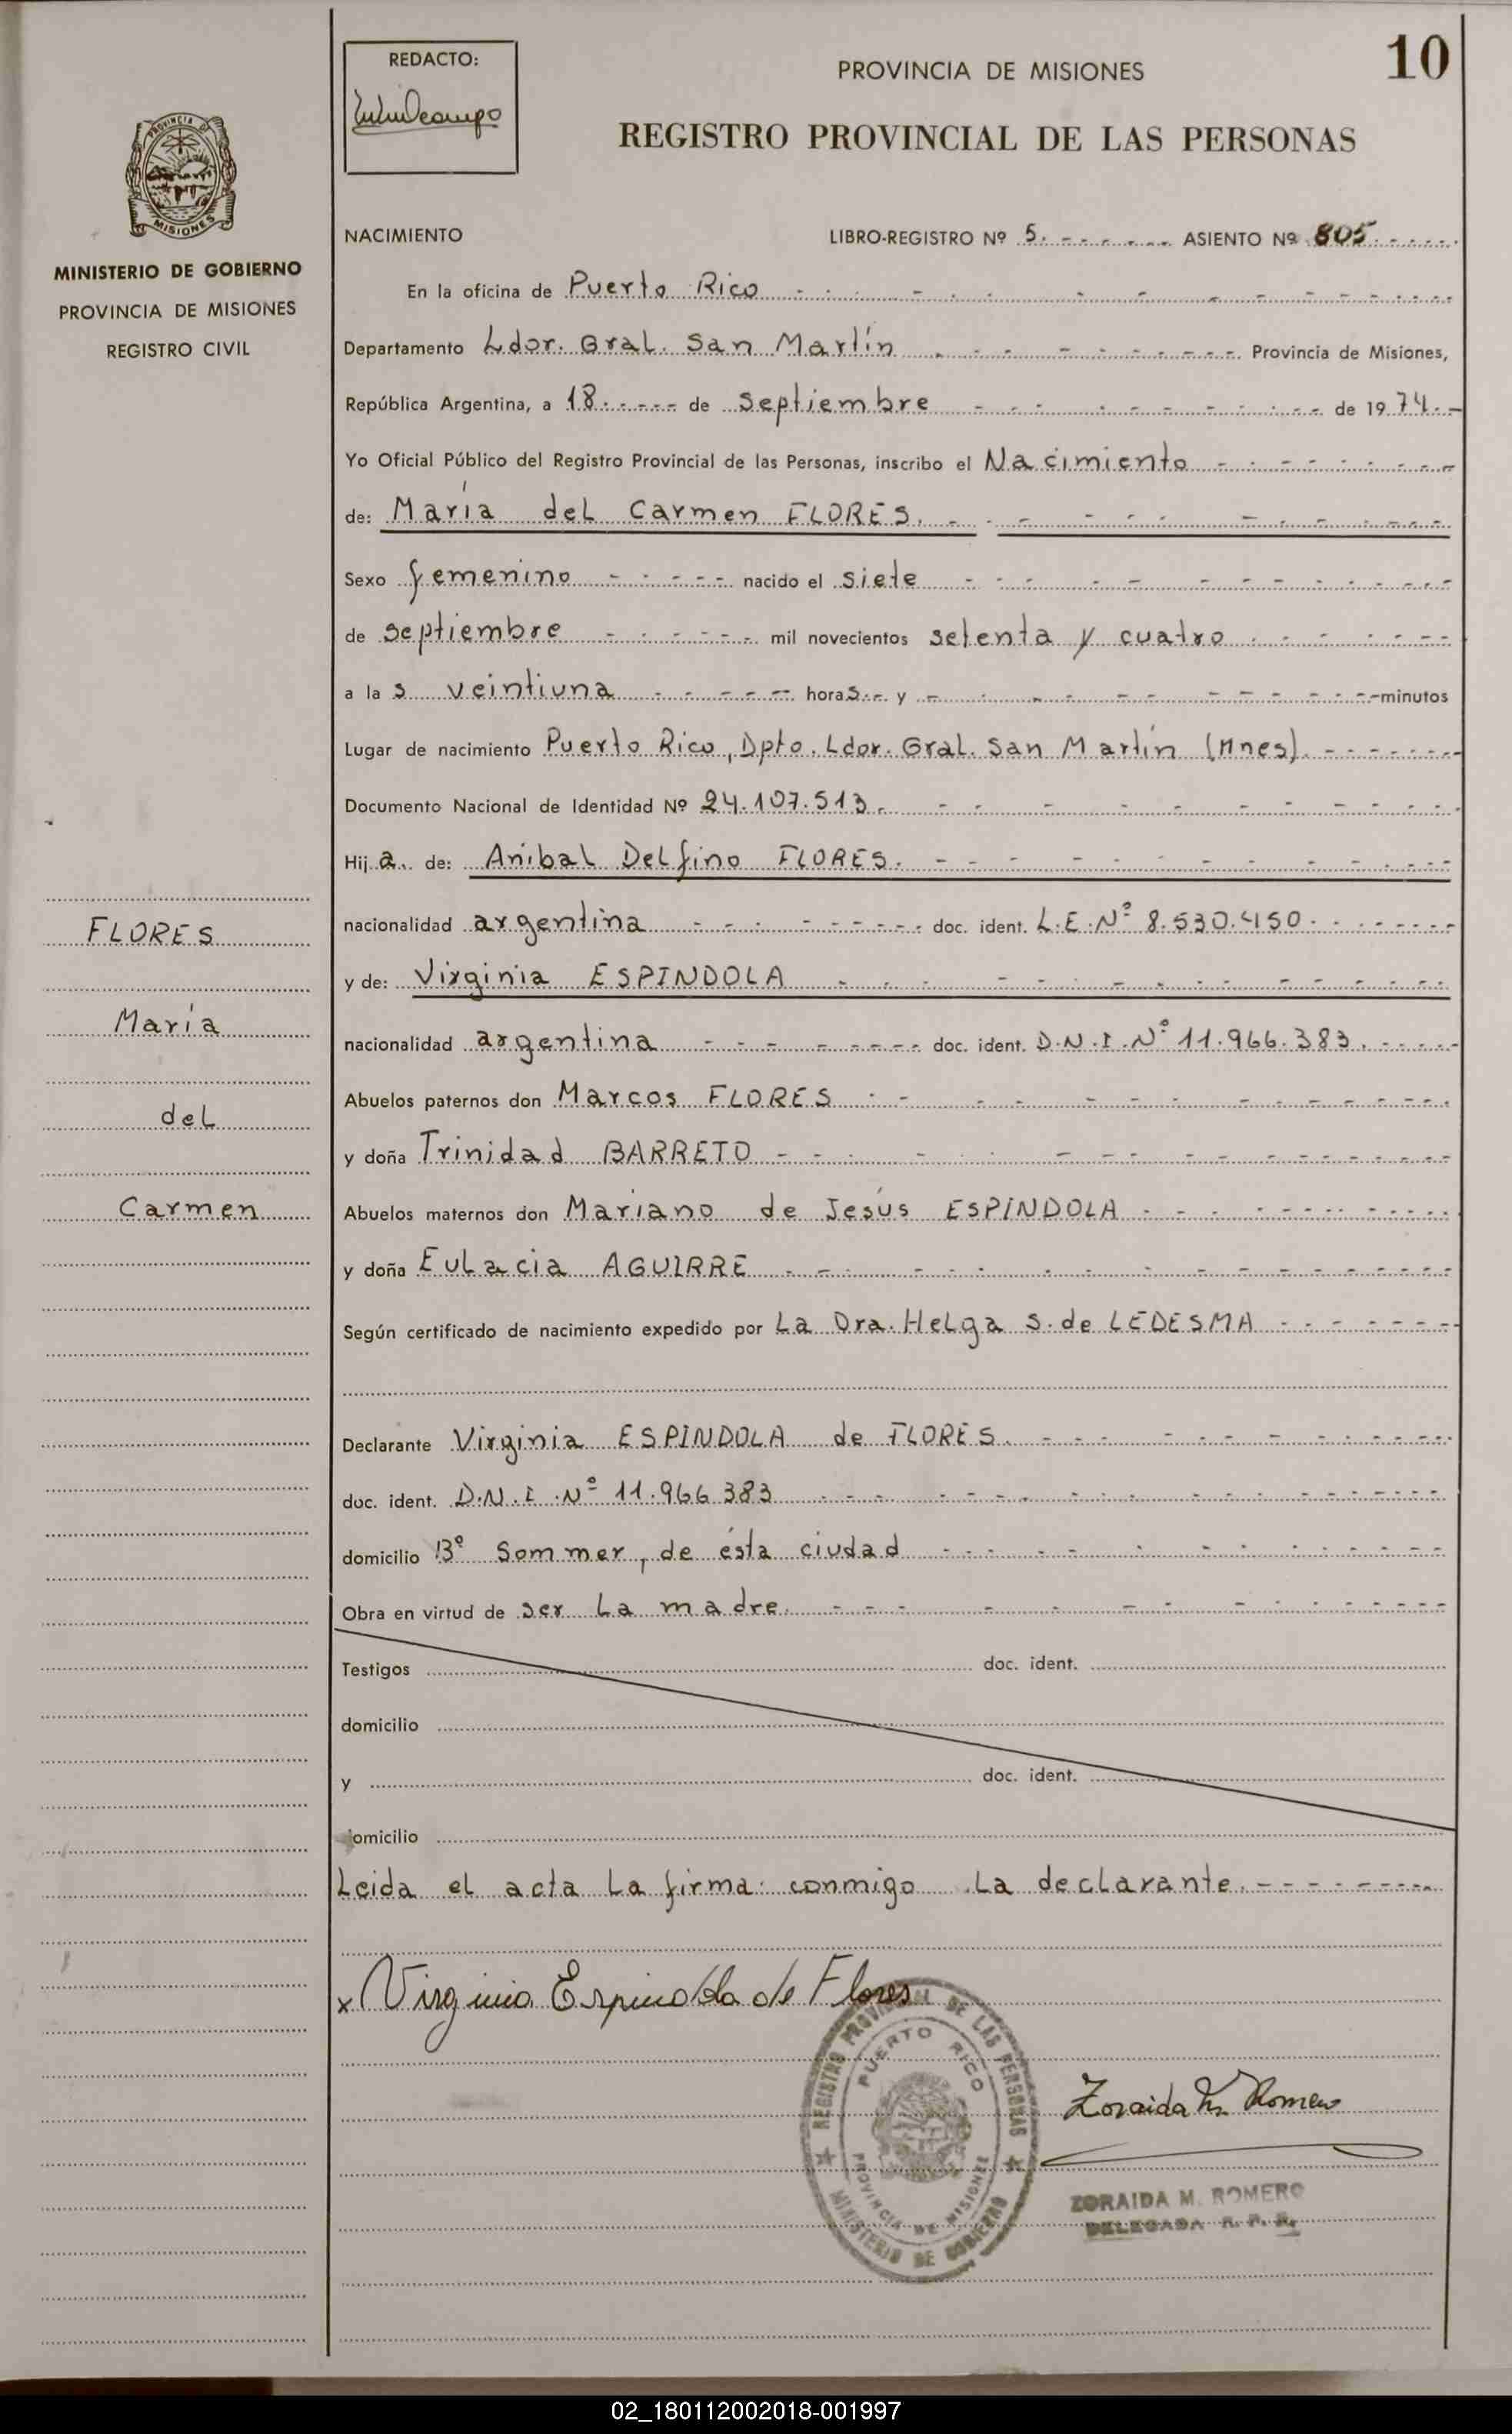 10
REDACTO:
PROVINCIA DE MISIONES
REGISTRO PROVINCIAL DE LAS PERSONAS
PROVINCIA DE
MISIONES
MINISTERIO DE GOBIERNO
PROVINCIA DE MISIONES
REGISTRO CIVIL
NACIMIENTO LIBRO-REGISTRO Nº 5. ASIENTO Nº 805
En la oficina de Puerto Rico
Departamento Ldor. Gral. San Martín Provincia de Misiones,
República Argentina, a 18 de septiembre de 1974.
Yo Oficial Público del Registro Provincial de las Personas, inscribo el Nacimiento
de: María del Carmen FLORES.
Sexo femenino nacido el siete
de septiembre mil novecientos setenta y cuatro
a las veintiuna horas y minutos
Lugar de nacimiento Puerto Rico, Dpto. Ldor. Gral. San Martín (Mnes).
Documento Nacional de Identidad Nº 24.107.513.
Hija de: Aníbal Delfino FLORES.
nacionalidad argentina doc. ident. L.E.Nº 8.530.450
y de: Virginia ESPINDOLA
nacionalidad argentina doc. ident. D.N.I.Nº 11.966.383.
Abuelos paternos don Marcos FLORES
y doña Trinidad BARRETO
Abuelos maternos don Mariano de Jesús ESPINDOLA
y doña Eulacia AGUIRRE
Según certificado de nacimiento expedido por La Dra. Helga S. de LEDESMA
Declarante Virginia ESPINDOLA de FLORES.
doc. ident. D.N.I.Nº 11.966.383
domicilio Bº Sommer, de ésta ciudad
Obra en virtud de ser la madre.
Testigos doc. ident.
domicilio
y doc. ident.
domicilio
Leida el acta la firma conmigo la declarante.
x Virginia Espindola de Flores
FLORES
María
del
Carmen
REGISTRO PROVINCIAL DE LAS PERSONAS
PUERTO RICO
PROVINCIA DE MISIONES
MINISTERIO DE GOBIERNO
Zoraida M. Romero
ZORAIDA M. ROMERO
DELEGADA R. P. P.
02_180112002018-001997